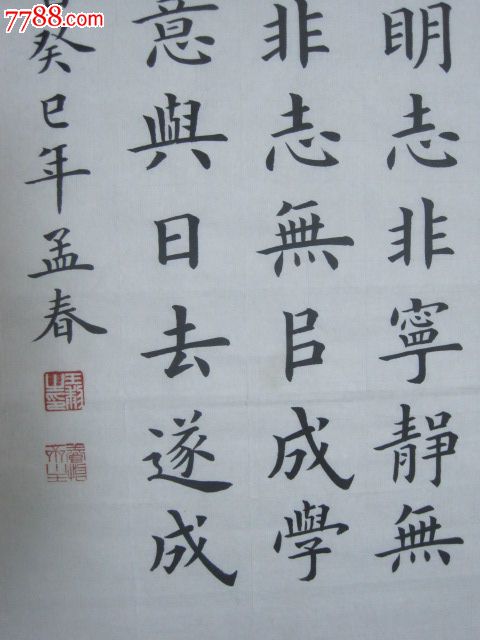 7788.com
明志非寧靜無
非志無㠯成學
意與日去遂成
癸巳年孟春